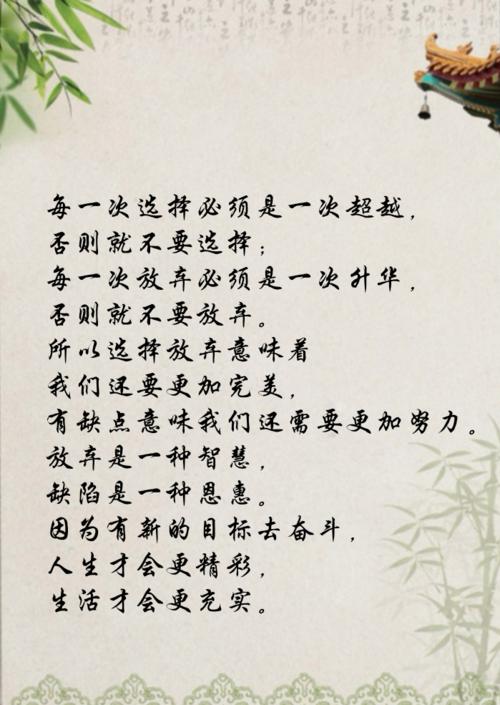 每一次选择必须是一次超越，
否则就不要选择；
每一次放弃必须是一次升华，
否则就不要放弃。
所以选择放弃意味着
我们还要更加完美，
有缺点意味我们还需要更加努力。
放弃是一种智慧，
缺陷是一种恩惠。
因为有新的目标去奋斗，
人生才会更精彩，
生活才会更充实。